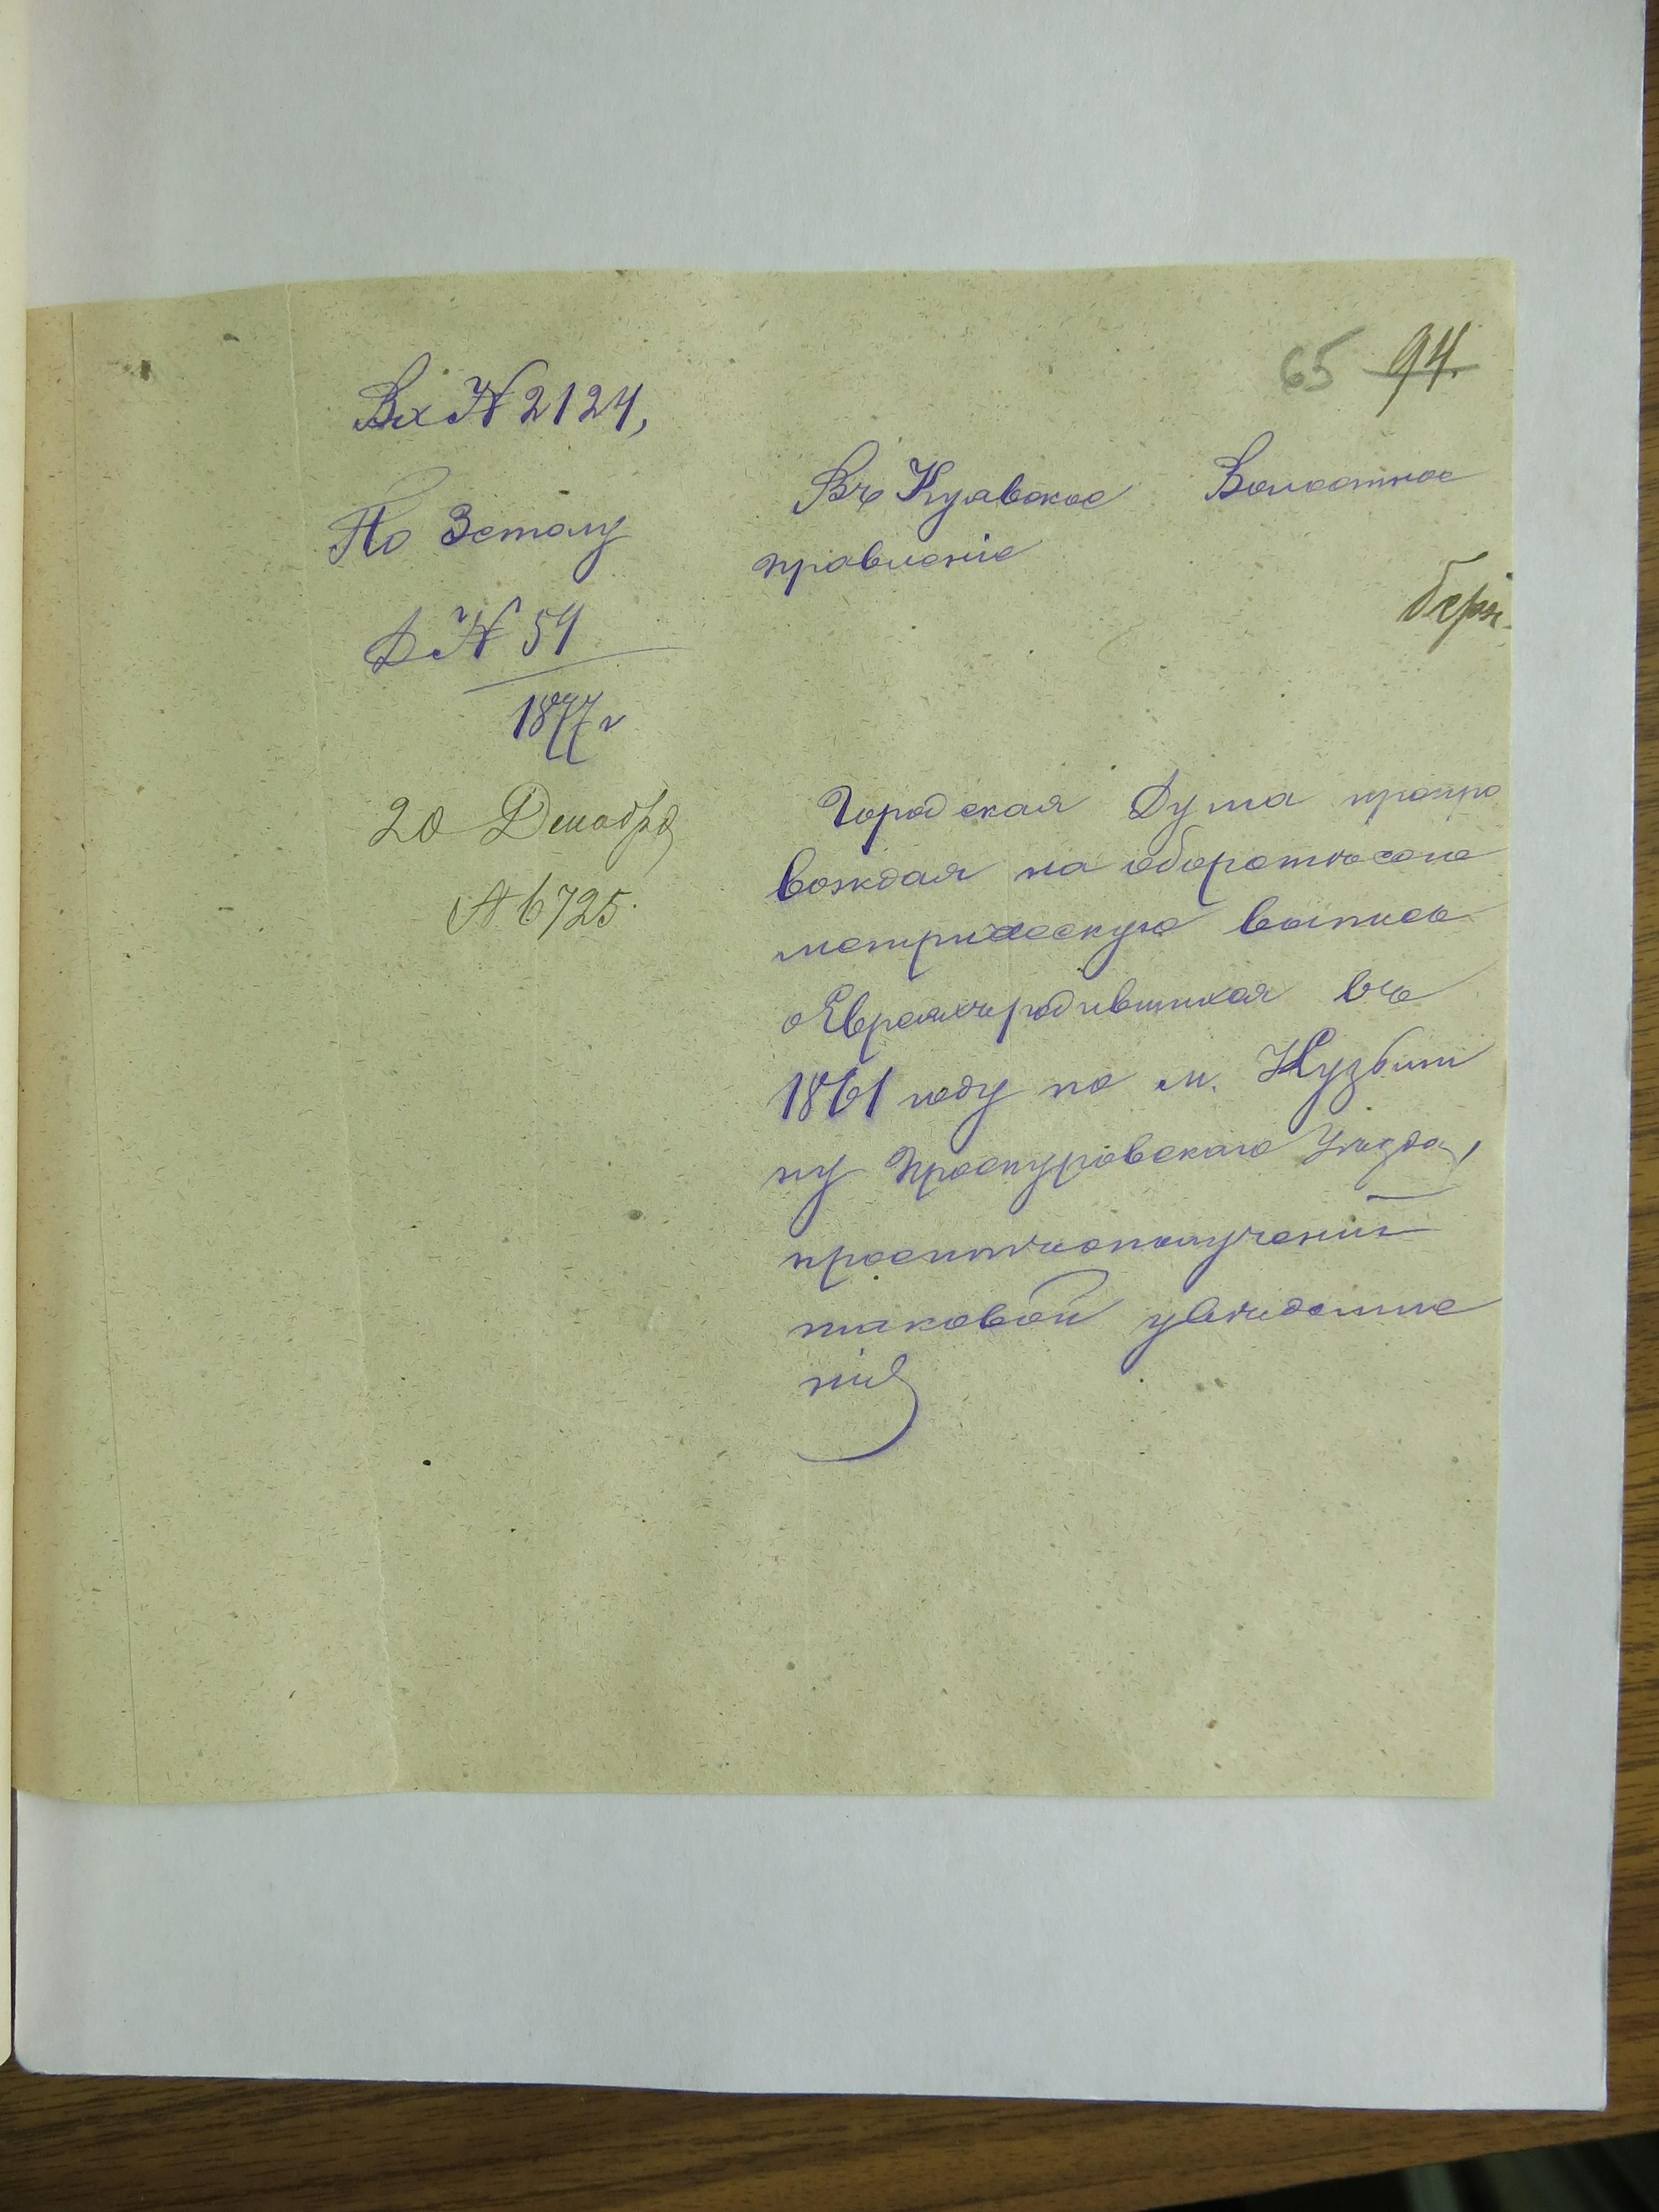 65 94.
Вх № 2124,
По 3 столу
Д № 54
1877 г
20 Декабря
№ 6725.
Въ Куявское Волостное
правленіе
Городская Дума препро
вождая на оборотѣ сего
метрическую выпись
о Евреяхъ родившихся въ
1861 году по м. Кузьми
ну Проскуровскаго Уѣзда,
проситъ о полученіи
таковой увѣдомле
нія